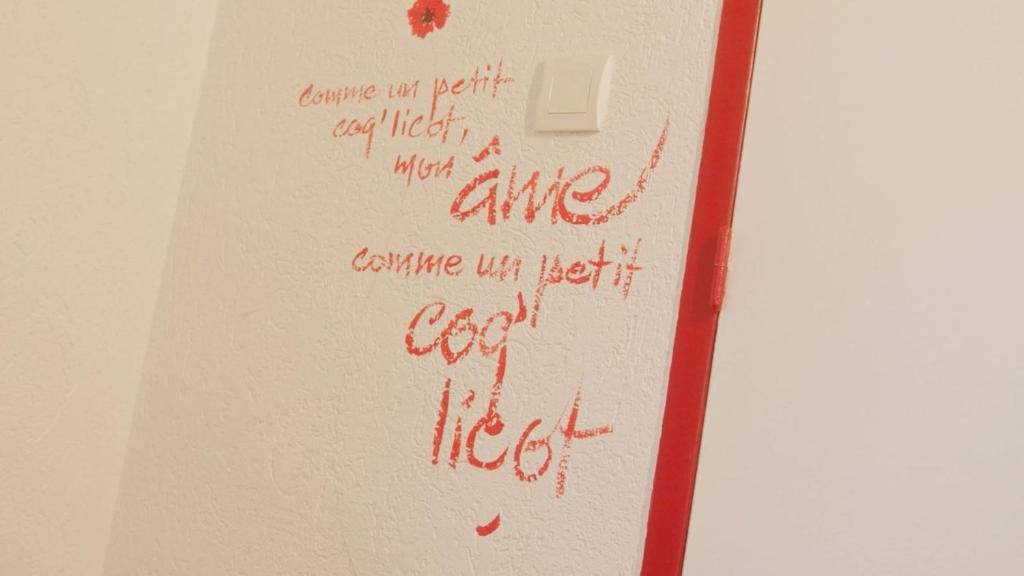 comme un petit
coq'licot,
mon âme
comme un petit
coq'
licot